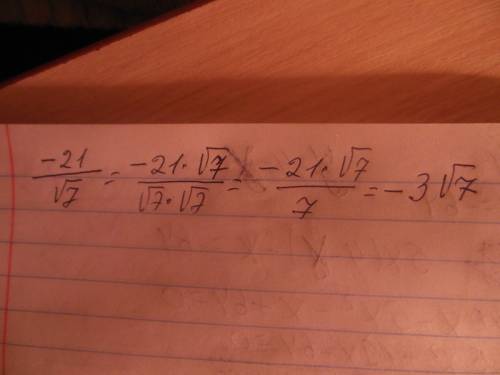 -21/√7 = -21·√7/√7·√7 = -21·√7/7 = -3√7